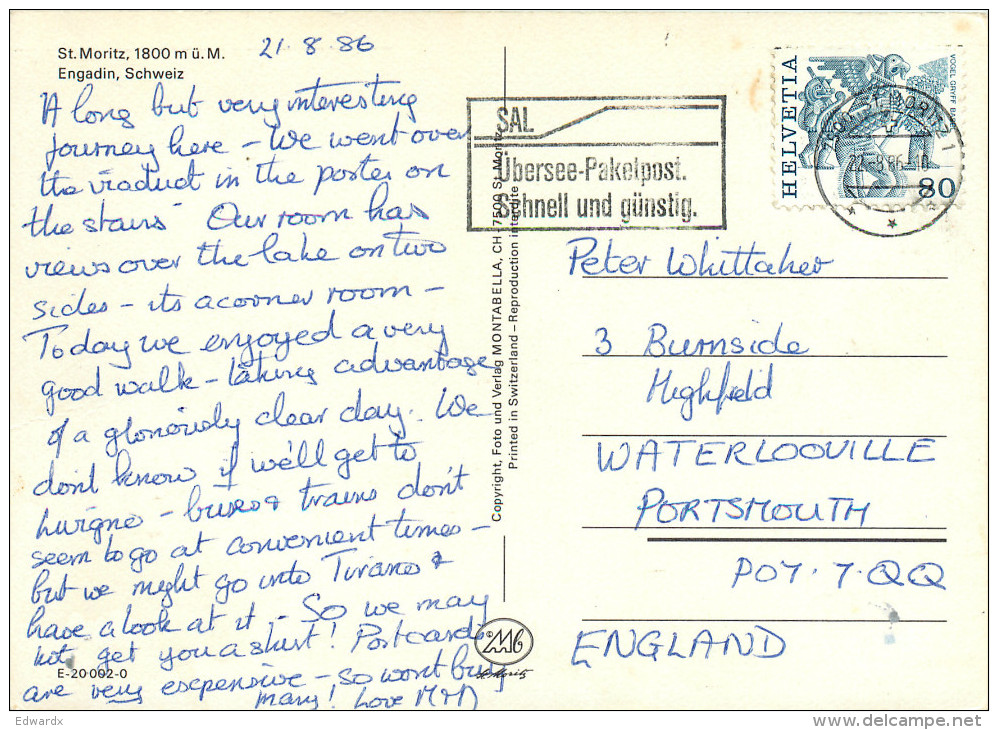 St. Moritz, 1800 m ü. M.
Engadin, Schweiz
21.8.86
A long but very interesting
journey here - We went over
the viaduct in the poster on
the stairs - Our room has
views over the lake on two
sides - its a corner room -
Today we enjoyed a very
good walk - taking advantage
of a gloriously clear day. We
don't know if we'll get to
Livigno - buses & trains don't
seem to go at convenient times -
but we might go into Tirano &
have a look at it - So we may
not get you a shirt! Postcards
are very expensive - so wont buy
many! Love M
E-20 002-0
Copyright, Foto und Verlag MONTABELLA, CH-7500 St. Moritz
Printed in Switzerland - Reproduction interdite
SAL
Übersee-Paketpost.
Schnell und günstig.
HELVETIA
VOGEL GRYFF
80
ST. MORITZ 1
22.-8.86-18
Peter Whittaker
3 Burnside
Highfield
WATERLOOVILLE
PORTSMOUTH
PO7. 7QQ
ENGLAND
Mb
St. Moritz
Edwardx
delcampe.net